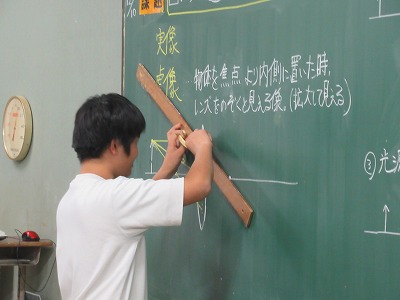 12/10
課題
実像
虚像
物体を焦点より内側に置いた時、
レンズをのぞくと見える像。(拡大して見える)
③光源